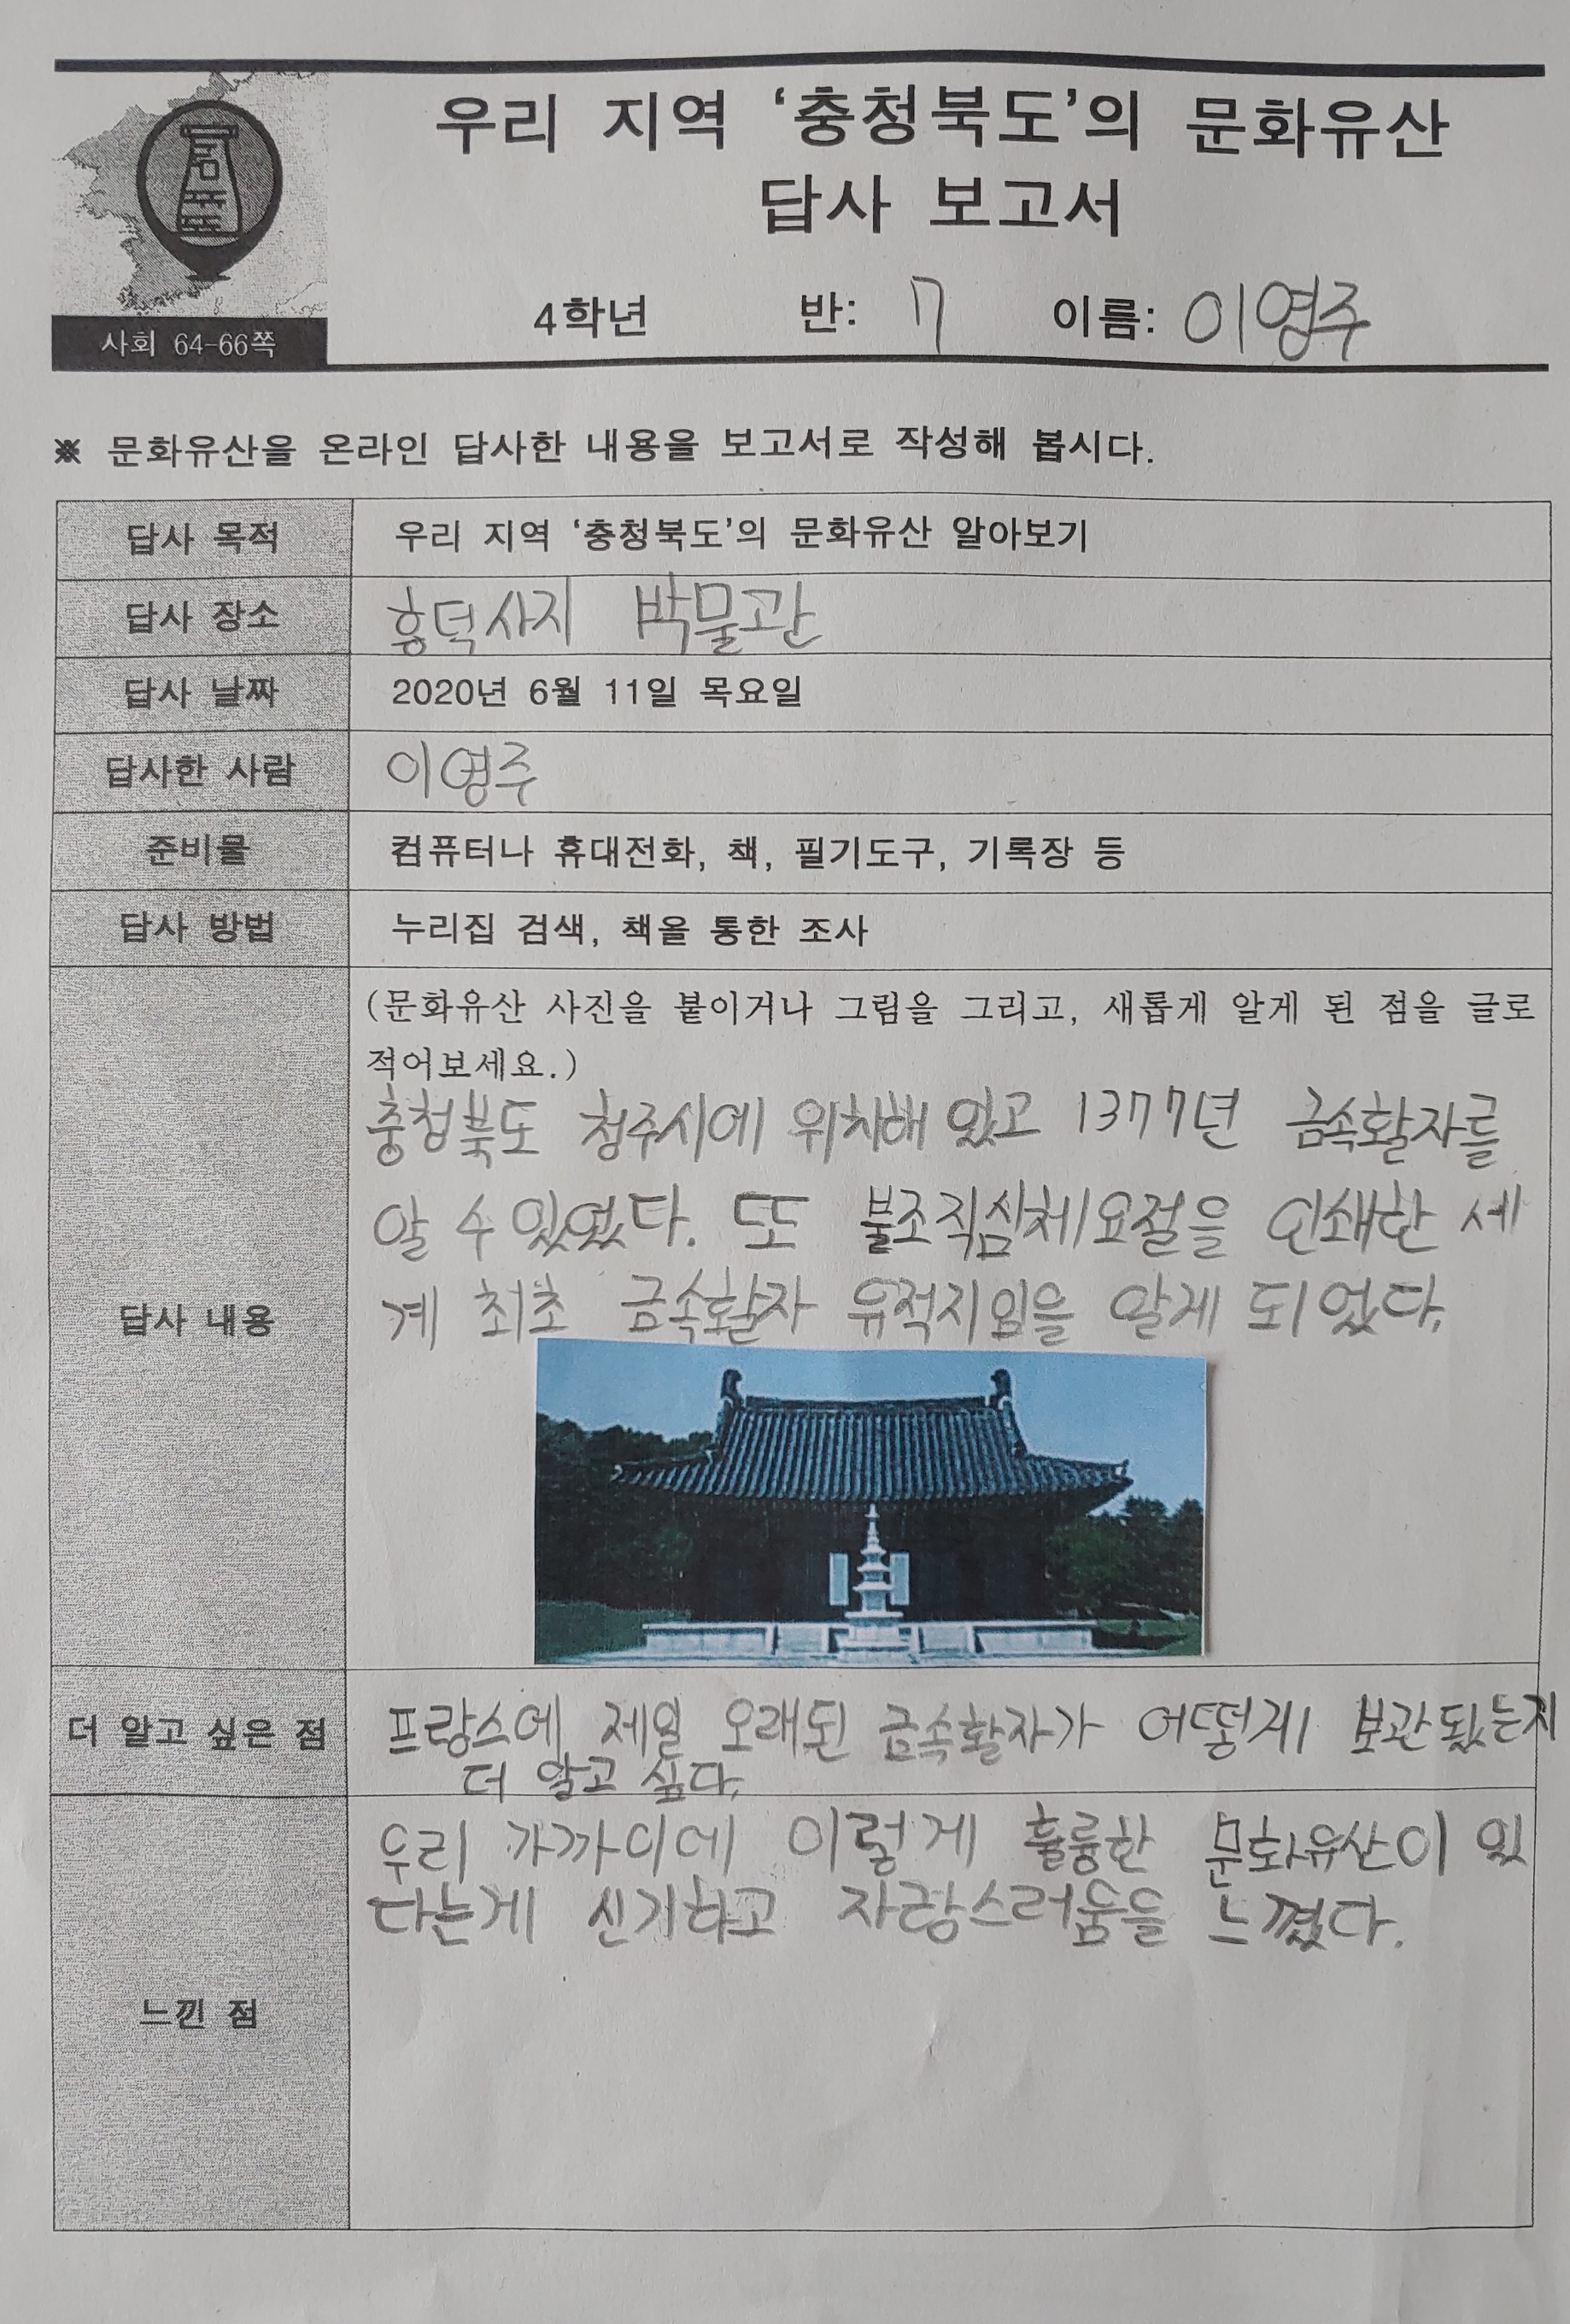 우리 지역 '충청북도'의 문화유산
답사 보고서
4학년 반: 7 이름: 이영주
사회 64-66쪽
※ 문화유산을 온라인 답사한 내용을 보고서로 작성해 봅시다.
답사 목적 우리 지역 '충청북도'의 문화유산 알아보기
답사 장소 흥덕사지 박물관
답사 날짜 2020년 6월 11일 목요일
답사한 사람 이영주
준비물 컴퓨터나 휴대전화, 책, 필기도구, 기록장 등
답사 방법 누리집 검색, 책을 통한 조사
답사 내용
(문화유산 사진을 붙이거나 그림을 그리고, 새롭게 알게 된 점을 글로
적어보세요.)
충청북도 청주시에 위치해 있고 1377년 금속활자를
알 수 있었다. 또 불조직심체요절을 인쇄한 세
계 최초 금속활자 유적지임을 알게 되었다.
더 알고 싶은 점 프랑스에 제일 오래된 금속활자가 어떻게 보관됬는지
더 알고 싶다.
느낀 점
우리 가까이에 이렇게 훌륭한 문화유산이 있
다는게 신기하고 자랑스러움을 느꼈다.